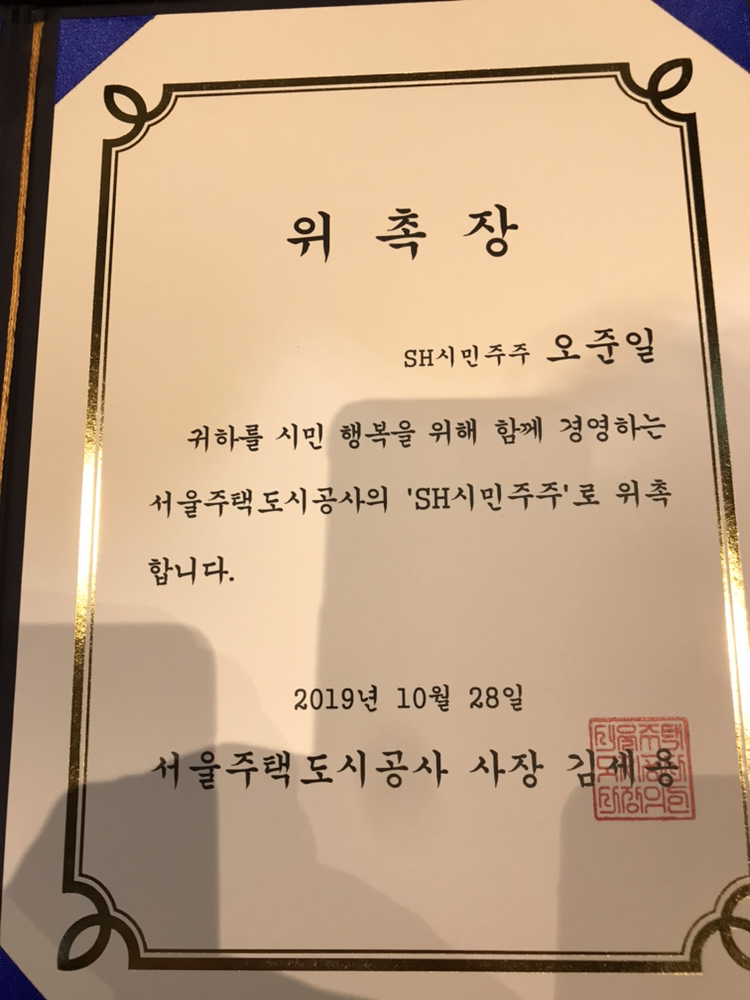 위촉장
SH시민주주 오준일
귀하를 시민 행복을 위해 함께 경영하는
서울주택도시공사의 'SH시민주주'로 위촉
합니다.
2019년 10월 28일
서울주택도시공사 사장 김세용